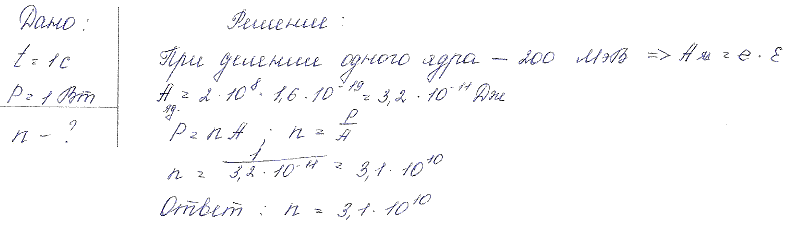 Дано: Решение:
t = 1 с При делении одного ядра – 200 МэВ => A яд = e · ε
P = 1 Вт A яд. = 2 · 10⁸ · 1,6 · 10⁻¹⁹ = 3,2 · 10⁻¹¹ Дж
n – ? P = n A ; n = P/A
n = 1/(3,2 · 10⁻¹¹) = 3,1 · 10¹⁰
Ответ : n = 3,1 · 10¹⁰